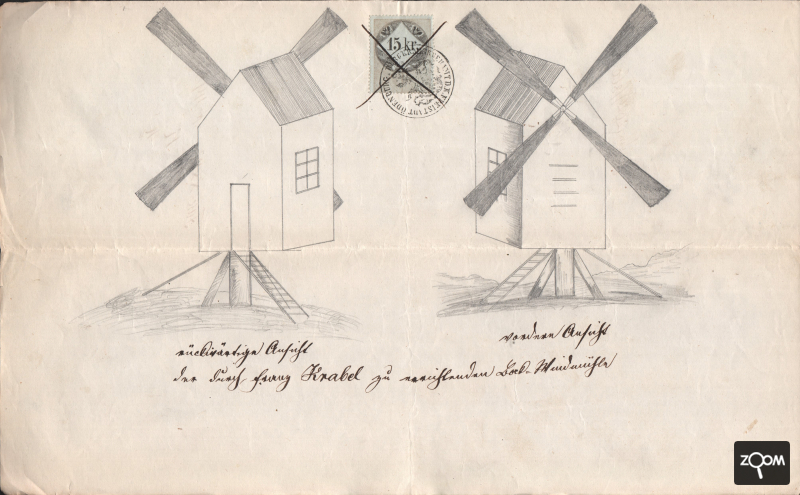 15 kr.
rückwärtige Ansicht
vordere Ansicht
der durch Franz Krabel zu errichtenden Bock-Windmühle
ZOOM